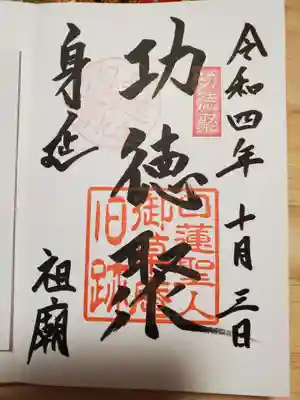 令和四年 十月 三日
功徳聚
功徳聚
日蓮聖人
御草庵
旧跡
身延
祖廟